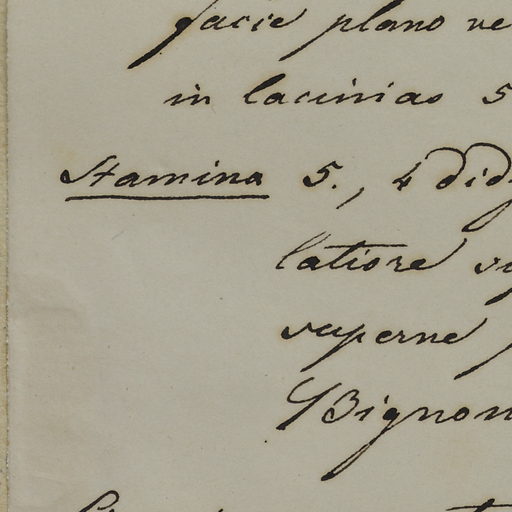 facie plano ve
in lacinias 5
Stamina 5., 4 did
latiore su
superne
Bignon